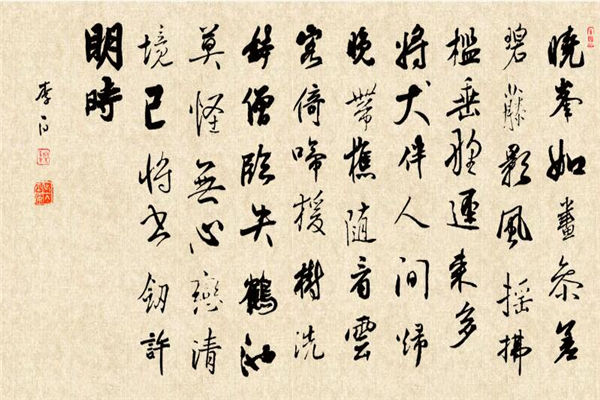 曉峯如畫參差
碧藤影風搖拂
檻垂野逕來多
將犬伴人間歸
晚帶樵隨看雲
客倚啼猨樹洗
鉢僧臨失鶴池
莫怪無心戀清
境已將書釼許
明時
李白